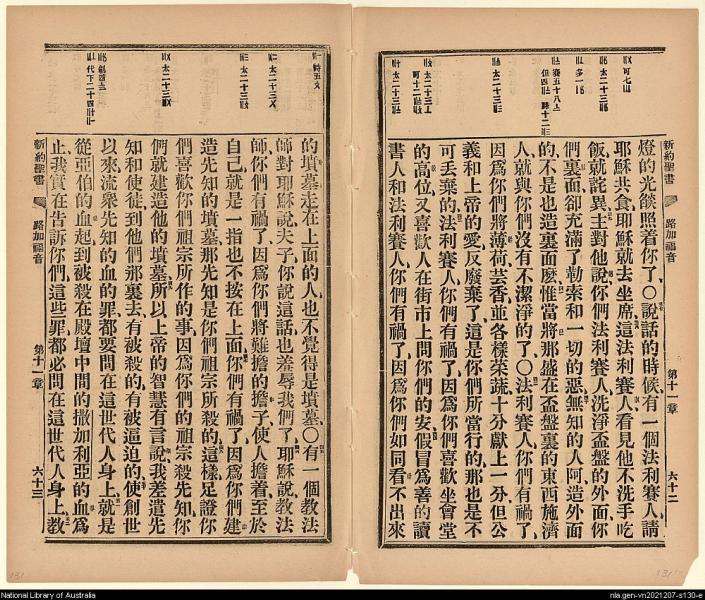 新約聖書
路加福音
第十一章
六十二
燈的光燄照着你了○說話的時候有一個法利賽人請
耶穌共食耶穌就去坐席這法利賽人看見他不洗手吃
飯就詫異主對他說你們法利賽人洗淨盃盤的外面你
們裏面卻充滿了勒索和一切的惡無知的人阿造外面
的不是也造裏面麽惟當將那盛在盃盤裏的東西施濟
人就與你們沒有不潔淨的了○法利賽人你們有禍了
因爲你們將薄荷芸香並各樣菜蔬十分獻上一分但公
義和上帝的愛反廢棄了這是你們所當行的那也是不
可丢棄的法利賽人你們有禍了因爲你們喜歡坐會堂
的高位又喜歡人在街市上問你們的安假冒爲善的讀
書人和法利賽人你們有禍了因爲你們如同看不出來
的墳墓走在上面的人也不覺得是墳墓○有一個教法
師對耶穌說夫子你說這話也羞辱我們了耶穌說教法
師你們有禍了因爲你們將難擔的擔子使人擔着至於
自己就是一指也不按在上面你們有禍了因爲你們建
造先知的墳墓那先知是你們祖宗所殺的這樣足證你
們喜歡你們祖宗所作的事因爲你們的祖宗殺先知你
們就建造他的墳墓所以上帝的智慧有言說我差遣先
知和使徒到他們那裏去有被殺的有被逼迫的使創世
以來流衆先知的血的罪都要問在這世代人身上就是
從亞伯的血起到被殺在殿壇中間的撒加利亞的血爲
止我實在告訴你們這些罪都必問在這世代人身上教
新約聖書
路加福音
第十一章
六十三
National Library of Australia
nla.gen-vn2021207-s130-e